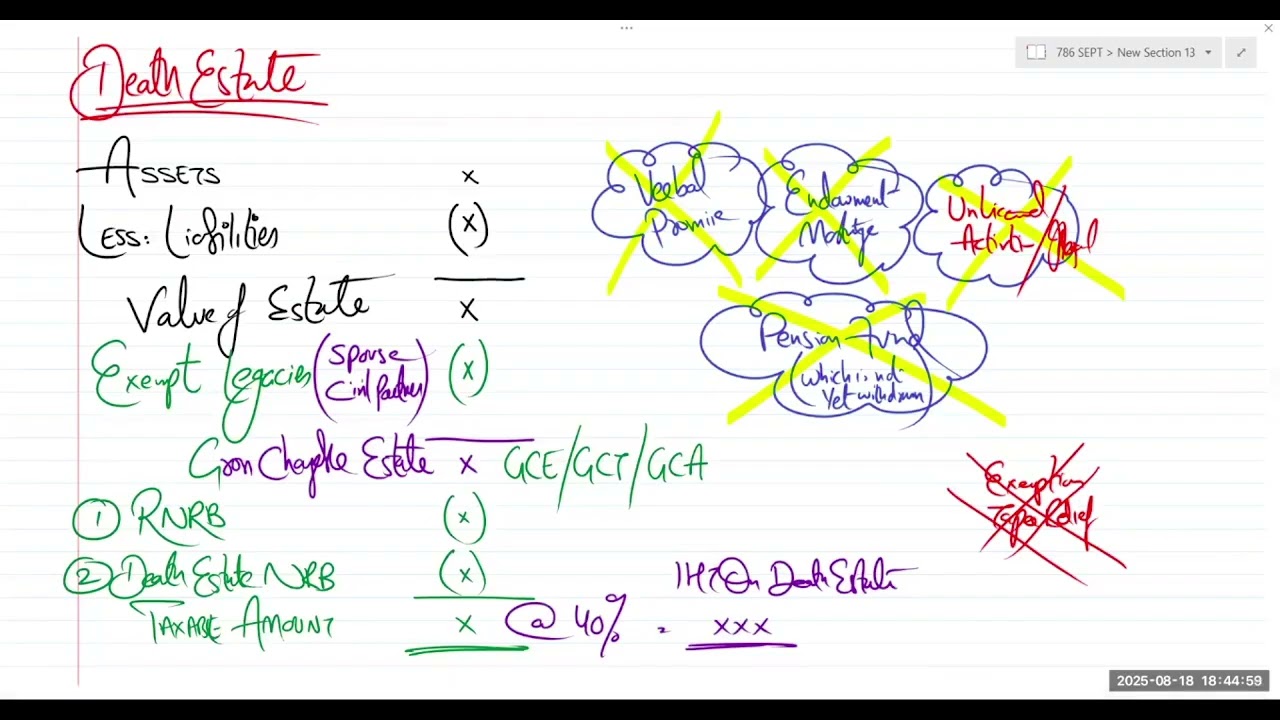 786 SEPT > New Section 13
Death Estate
ASSETS x
LESS: Liabilities (x)
Value of Estate x
Exempt Legacies (Spouse Civil Partner) (x)
Gross Chargeable Estate x GCE/GCT/GCA
① RNRB (x)
② Death Estate NRB (x)
TAXABLE AMOUNT x @ 40% =
IHT On Death Estate
xxx
Verbal
Promise
Endowment
Mortgage
Unlicensed
Activiti / Illegal
Pension fund
(which is not
Yet withdrawn
Exemption
Taper Relief
2025-08-18 18:44:59